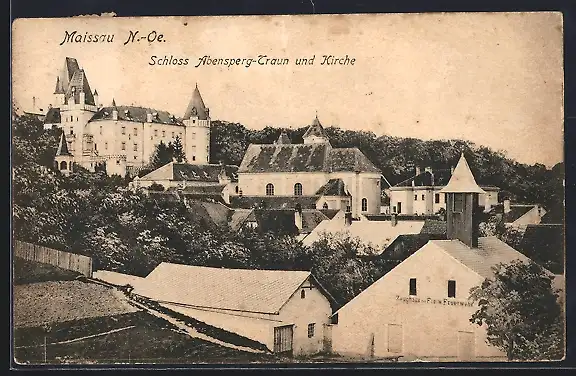 Maissau N.-Oe.
Schloss Abensperg-Traun und Kirche
Zeughaus der Freiw. Feuerwehr